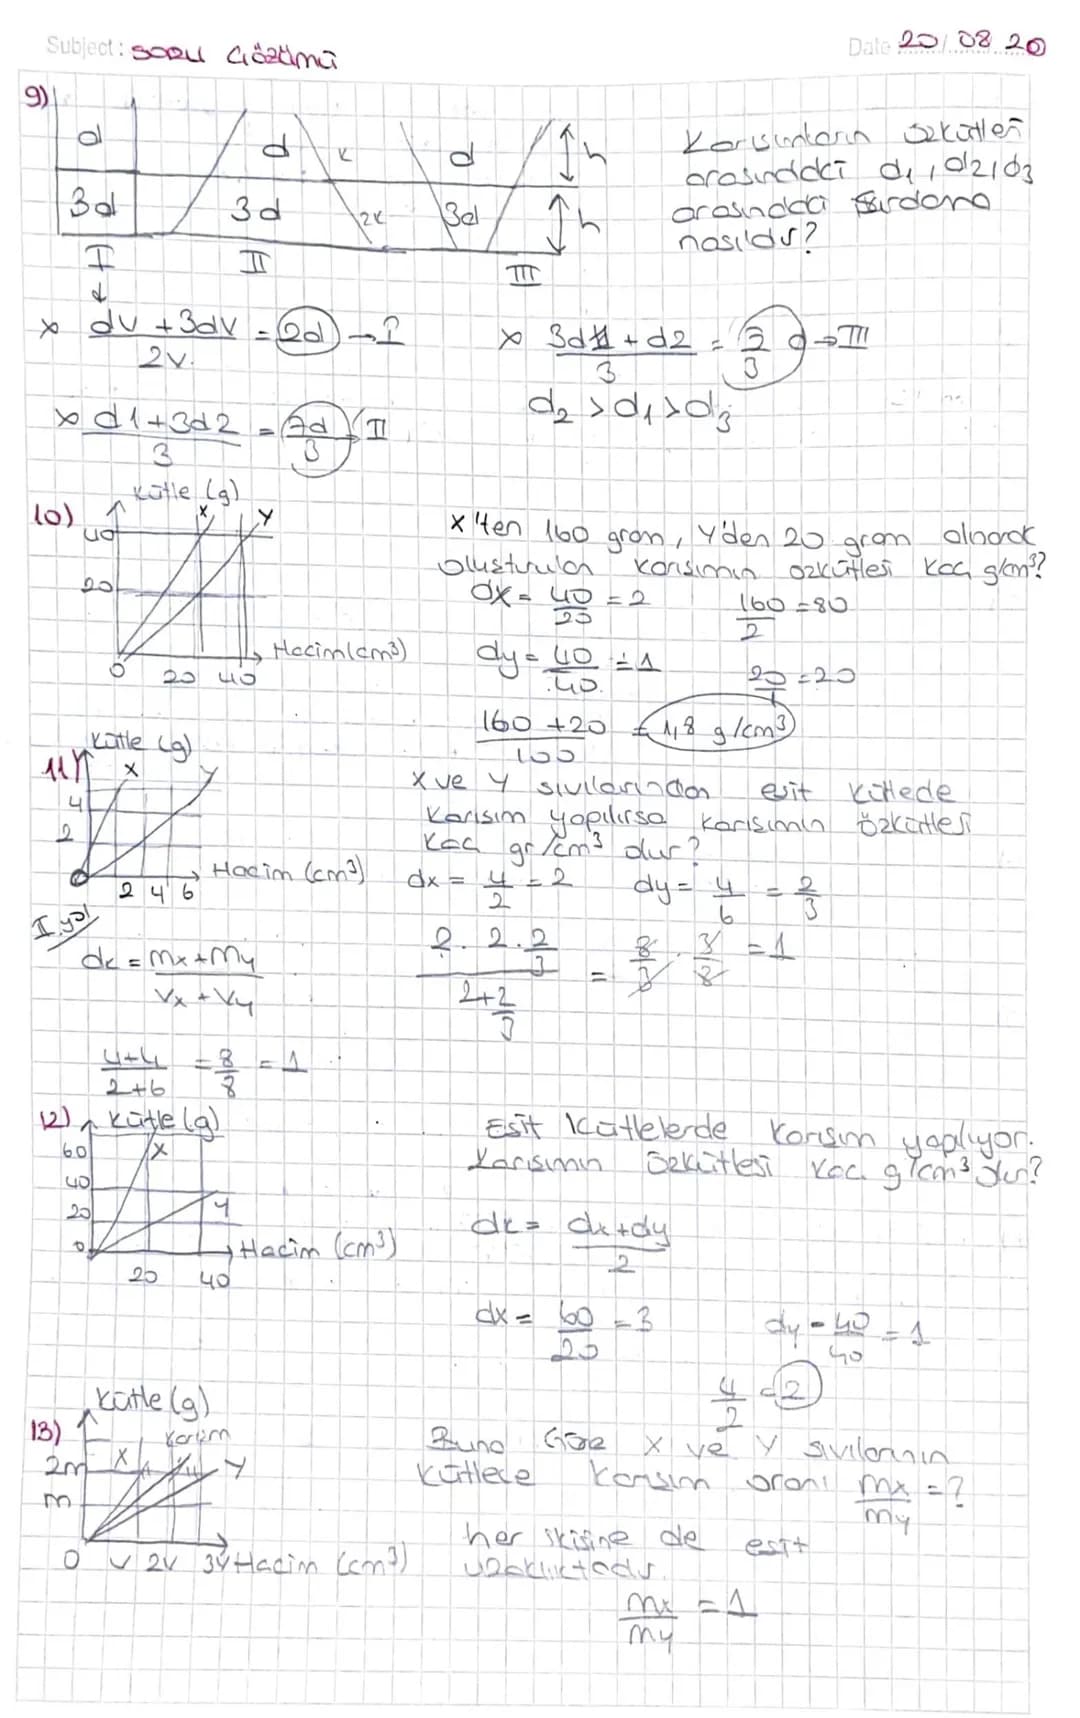 Subject: SORU ÇÖZÜMÜ
Date 20/08/20
9)
d d K d h
3d 3d 2K 3d h
I II III
Karısımların özkütleri
arasındaki d1, d2, d3
arasındaki
nasıldır?
x dV + 3dV / 2V. = 2d → I
x 3d1 + d2 / 3 = d → III
d2 > d1 > d3
x d1 + 3d2 / 3 = 7d / 3 II
10)
Kütle (g)
X Y
40
20
0 20 40
Hacim(cm³)
X'ten 160 gram, Y'den 20 gram alınarak
oluşturulan karısımın özkütlesi kaç g/cm³?
dx = 40/20 = 2 160/2 = 80
dy = 40/40. = 1 20/1 = 20
160 + 20 / 100 = 1,8 g/cm³
11)
Kütle (g)
X Y
4
2
0 2 4 6
Hacim (cm³)
X ve Y sıvılarından esit kütlede
karısım yapılırsa karısımın özkütlesi
kaç gr/cm³ dur?
dx = 4/2 = 2 dy = 4/6 = 2/3
II. yol
dk = mx + my / Vx + Vy
2 . 2 . 2/3 / 2 + 2/3 = 8/3 . 3/8 = 1
4+4 / 2+6 = 8/8 = 1
12)
Kütle (g)
60 X
40
20 Y
0 20 40
Hacim (cm³)
Esit kütlelerde karısım yapılıyor.
Karısımın özkütlesi kaç g/cm³ dur?
dk = dx + dy / 2
dx = 60/20 = 3 dy = 40/40 = 1
4/2 = 2
13)
Kütle (g)
X Karısım Y
2m
m
0 V 2V 3V Hacim (cm³)
Buna Göre X ve Y sıvılarının
kütlece karısım oranı mx/my = ?
her ikisine de esit
uzaklıktadır.
mx/my = 1